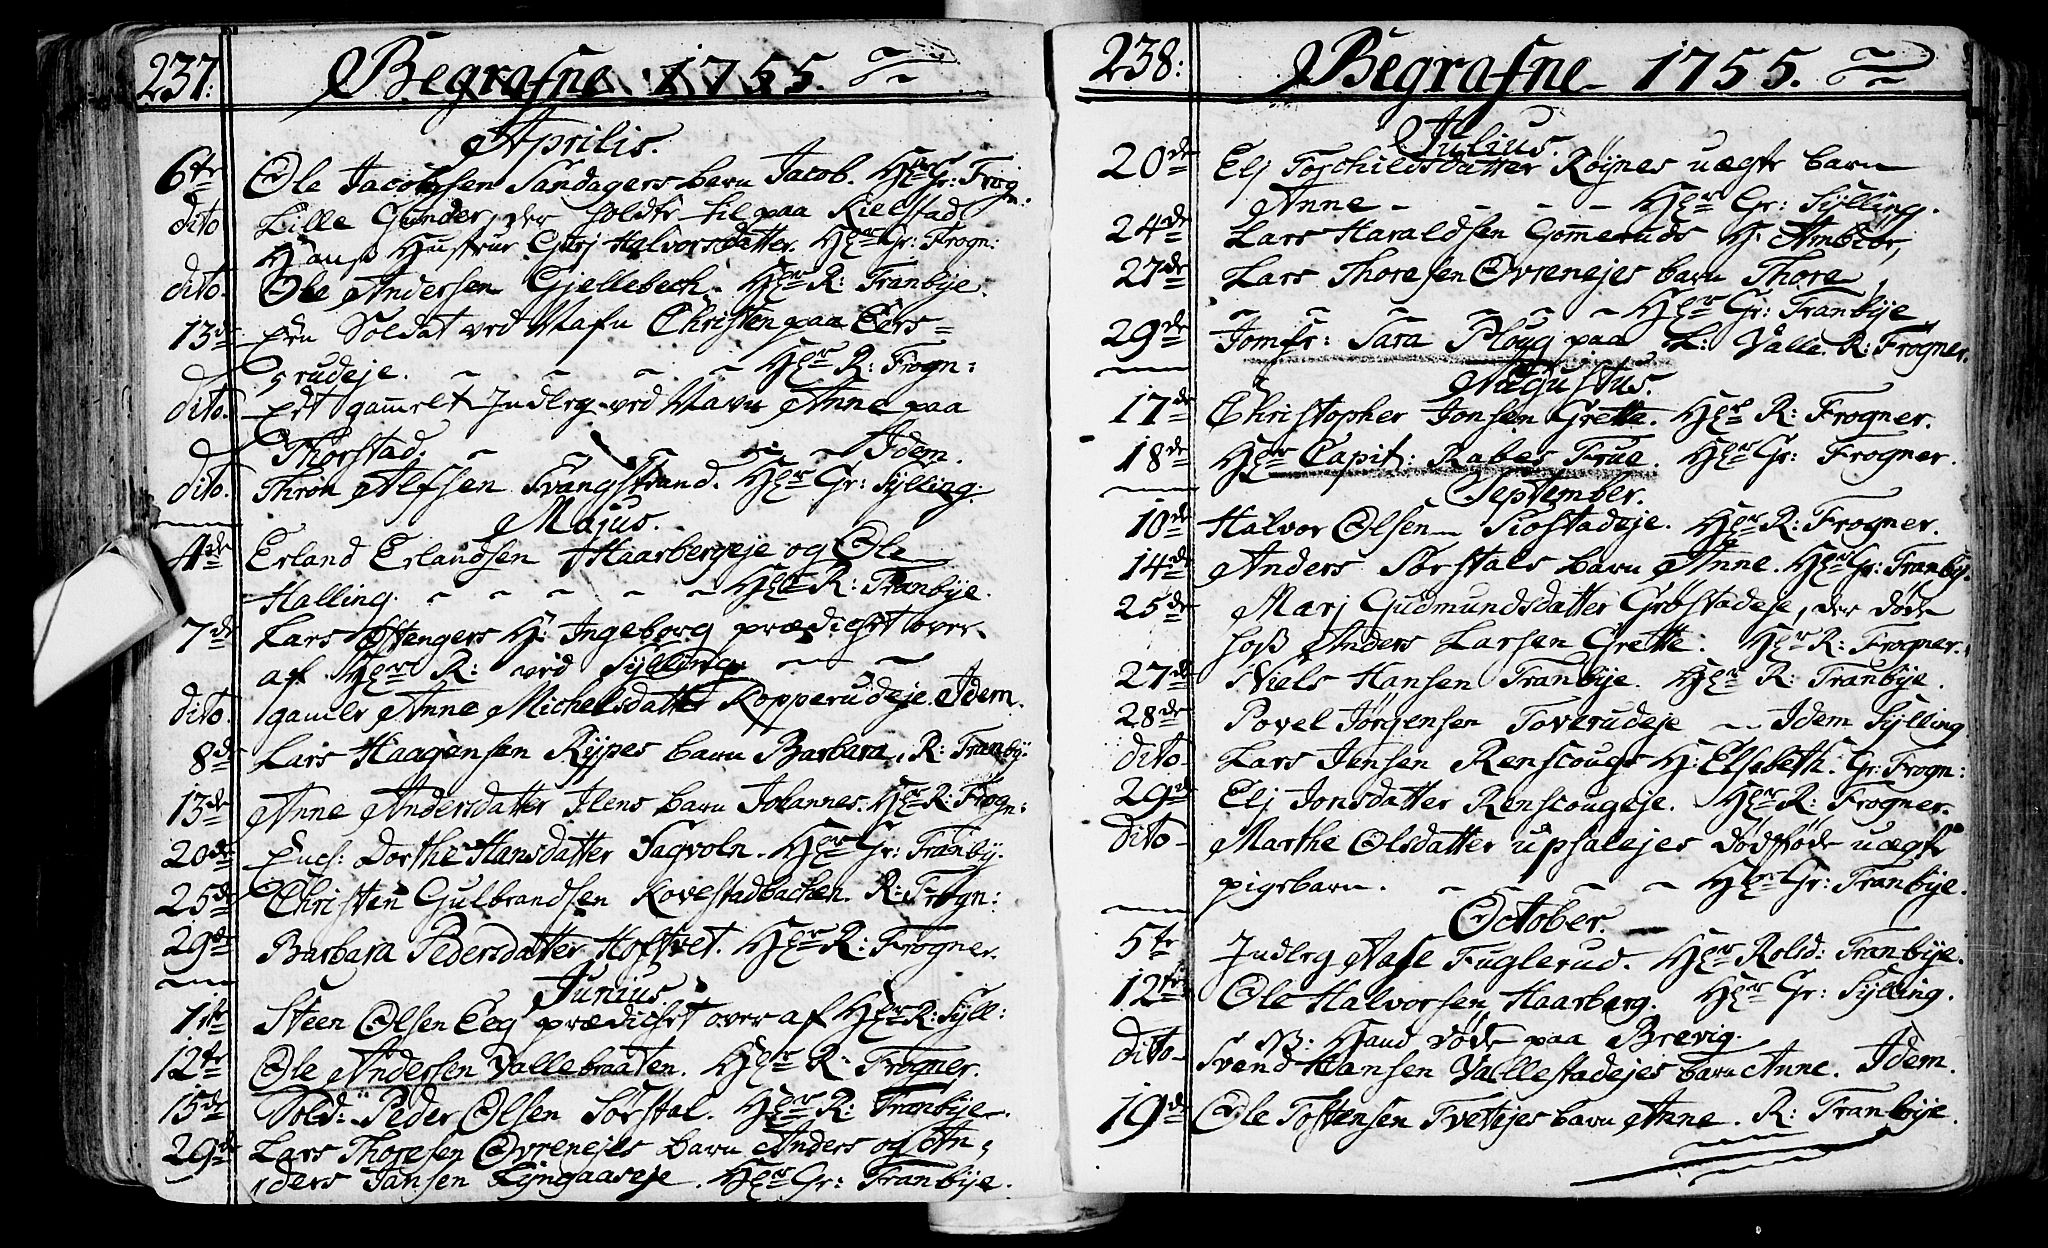 237: Begrafne 1755.
Aprilis.
6te Ole Jacobsen Sandagers barn Jacob. Hr Gr: Frogn:
dito Lille Gunder, der holdte til paa Kielstad
Hans Hustrue Gurj Halvorsdatter. Hr Gr: Frogn:
dito. Ole Andersen Gjellebech. Hr R: Tranbÿe.
13de Een Soldat ved Nafn Christen paa Eegs=
rudeje. Hr R: Frogn:
dito. Et gammelt Indleg ved Navn Anne paa
Thorstad. Idem.
dito. Thron Alfsen Svangstrand. Hr Gr: Sylling.
Majus.
4de Erland Erlandsen Haarbergeje og Ole
Halling. Hr R: Tranbÿe.
7de Lars Østengers H: Ingeborg prædichet over
af Hr R: ved Sylling
dito. gamle Anne Michelsdatter Kopperudeje. Idem.
8de Lars Haagensen Rÿpes barn Barbara. R: Tranbÿ:
13de Anne Andersdatter Ilens barn Johannes. Hr R: Frogn:
20de Ench: Dorthe Hansdatter Sagvoln. Hr Gr: Tranbÿ.
25de Christen Gulbrandsen Kovestadbachen. R: Frogn:
29de Barbara Pedersdatter Hoftvet. Hr R: Frogner.
Junius.
1ste Steen Olsen Eeg prædichet over af Hr R: Syll:
12te Ole Andersen Vallebraaten. Hr R: Frogner.
15de Sold: Peder Olsen Sørstal. Hr R: Tranbÿe.
29de Lars Thoresen Øvrenejes barn Anders og An=
ders Jansen Lÿngaaseje. Hr Gr: Tranbÿe.
238: Begrafne 1755.
Julius.
20de Elj Torchildsdatter Røÿnes uægte barn
Anne Hr Gr: Sylling.
24de Lars Haraldsen Gommeruds H. Ambiør,
27de Lars Thoresen Øvrenejes barn Thore,
Hr Gr: Tranbÿe
29de Jomfr: Sara Ploug paa L: Valle. R: Frogner.
Augustus.
17de Christopher Jonsen Grette. Hr R: Frogner.
18de Hr Capit: Rabes Frue. Hr Gr: Frogner.
September.
10de Halvor Olsen Siøstadeje. Hr R: Frogner.
14de Anders Sørstals barn Anne. Hr Gr: Tranbÿ.
25de Marj Gudmundsdatter Grøstadeje, der døde
hoß Anders Larsen Grette. Hr R: Frogner.
27de Niels Hansen Tranbÿe. Hr R: Tranbÿe.
28de Povel Jørgensen Toverudeje Idem Sylling
dito Lars Jensen Renscougs H: Elsebeth. Gr: Frogn:
29de Elj Jonsdatter Renscougeje. Hr R: Frogner.
dito Marthe Olsdatter Upsalejes dødfødde uægte
pigebarn. Hr Gr: Tranbÿe.
October.
5te Indleg Aase Fuglerud. Hr Rold: Tranbÿe.
12te Ole Halvorsen Haarberg. Hr Gr: Sylling.
NB: Hand døde paa Brevig.
dito Svend Hansen Vallestadejes barn Anne. Idem.
19de Ole Tostensen Tvetejes barn Anne. R: Tranbÿe.